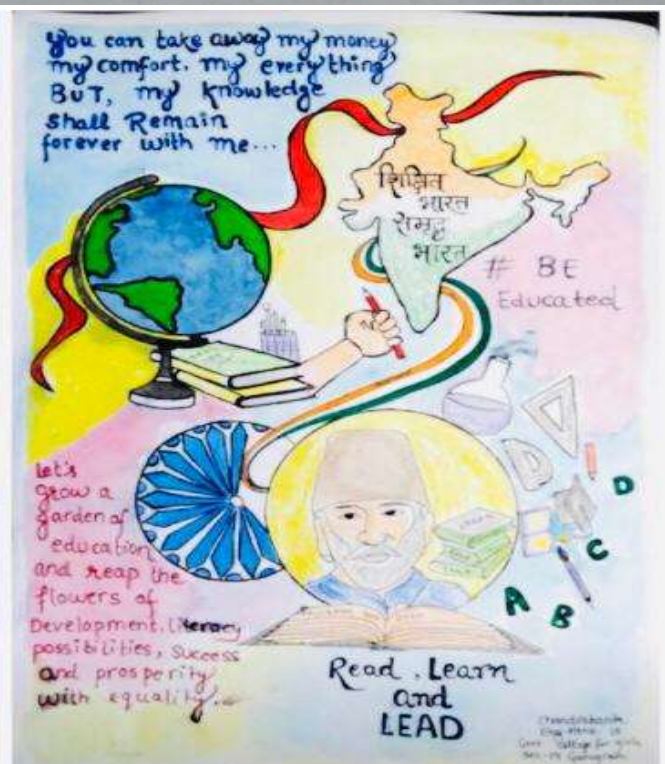 You can take away my money
my comfort. my everything
BUT, my knowledge
Shall Remain
forever with me...
शिक्षित
भारत
समृद्ध
भारत
# BE
Educated
Let's
grow a
garden of
education
and reap the
flowers of
Development. Literacy
possibilities, Success
and prosperity
with equality...
D
C
A B
Read, Learn
and
LEAD